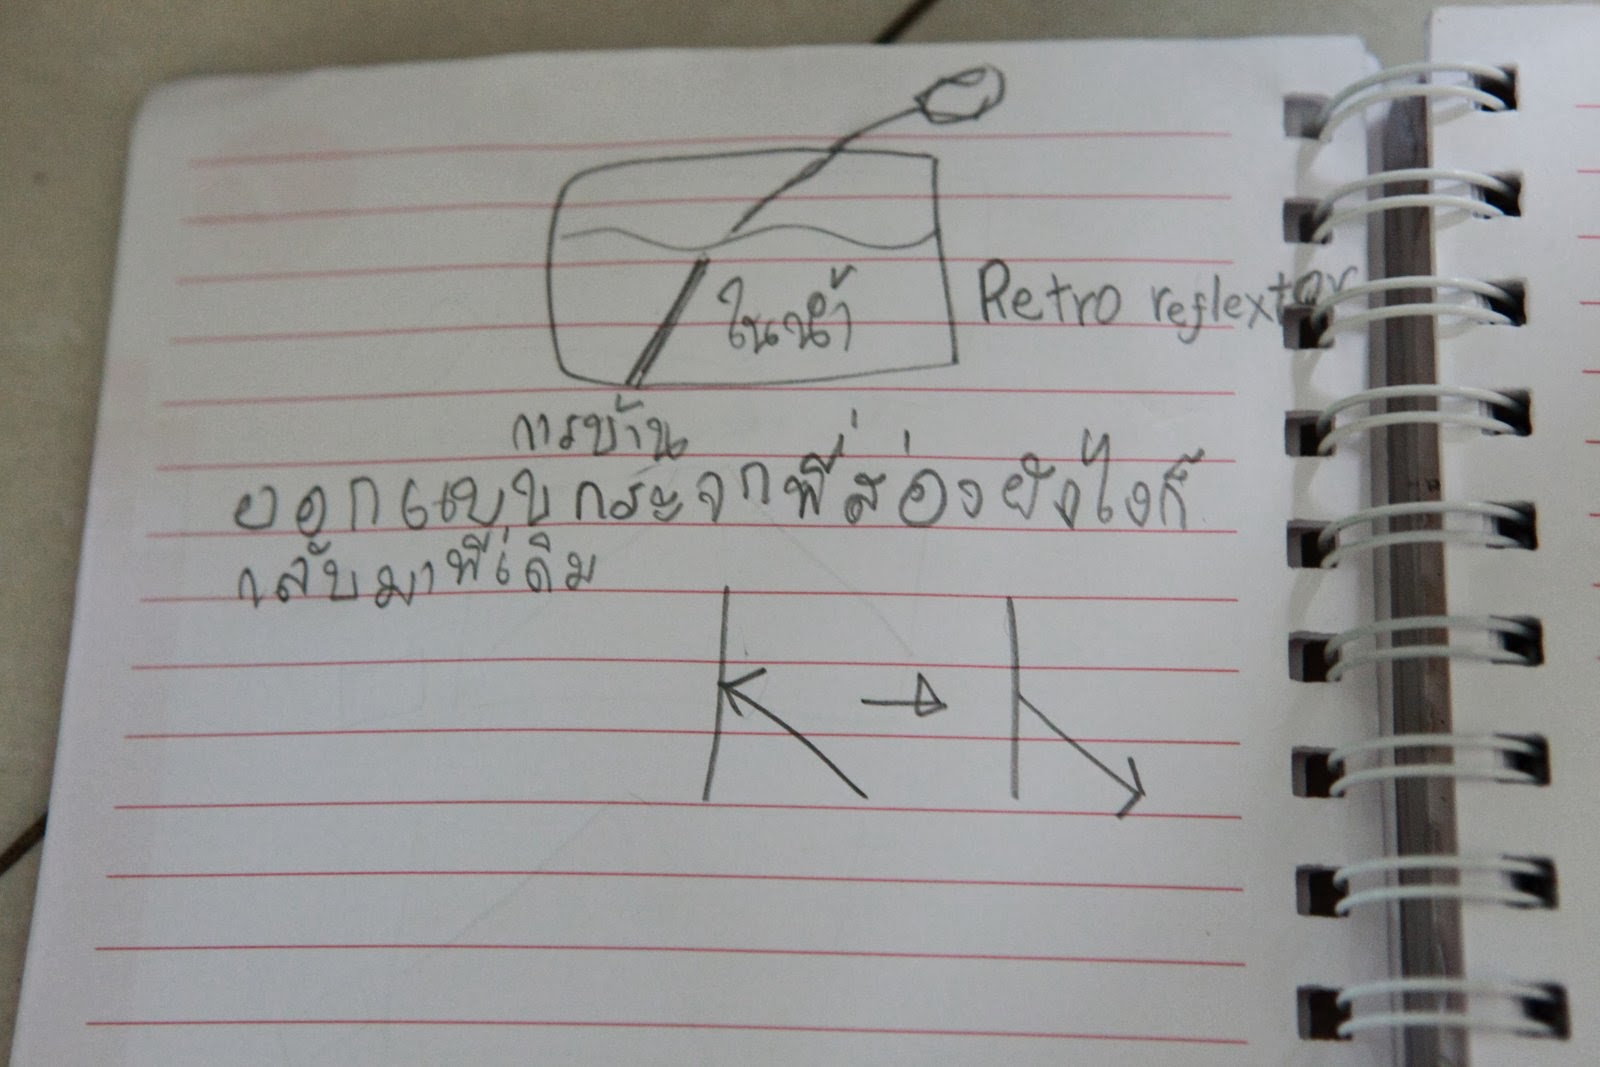 ในน้ำ
Retro reflextor
การบ้าน
ออกแบบกระจกที่ส่องยังไงก็
กลับมาที่เดิม